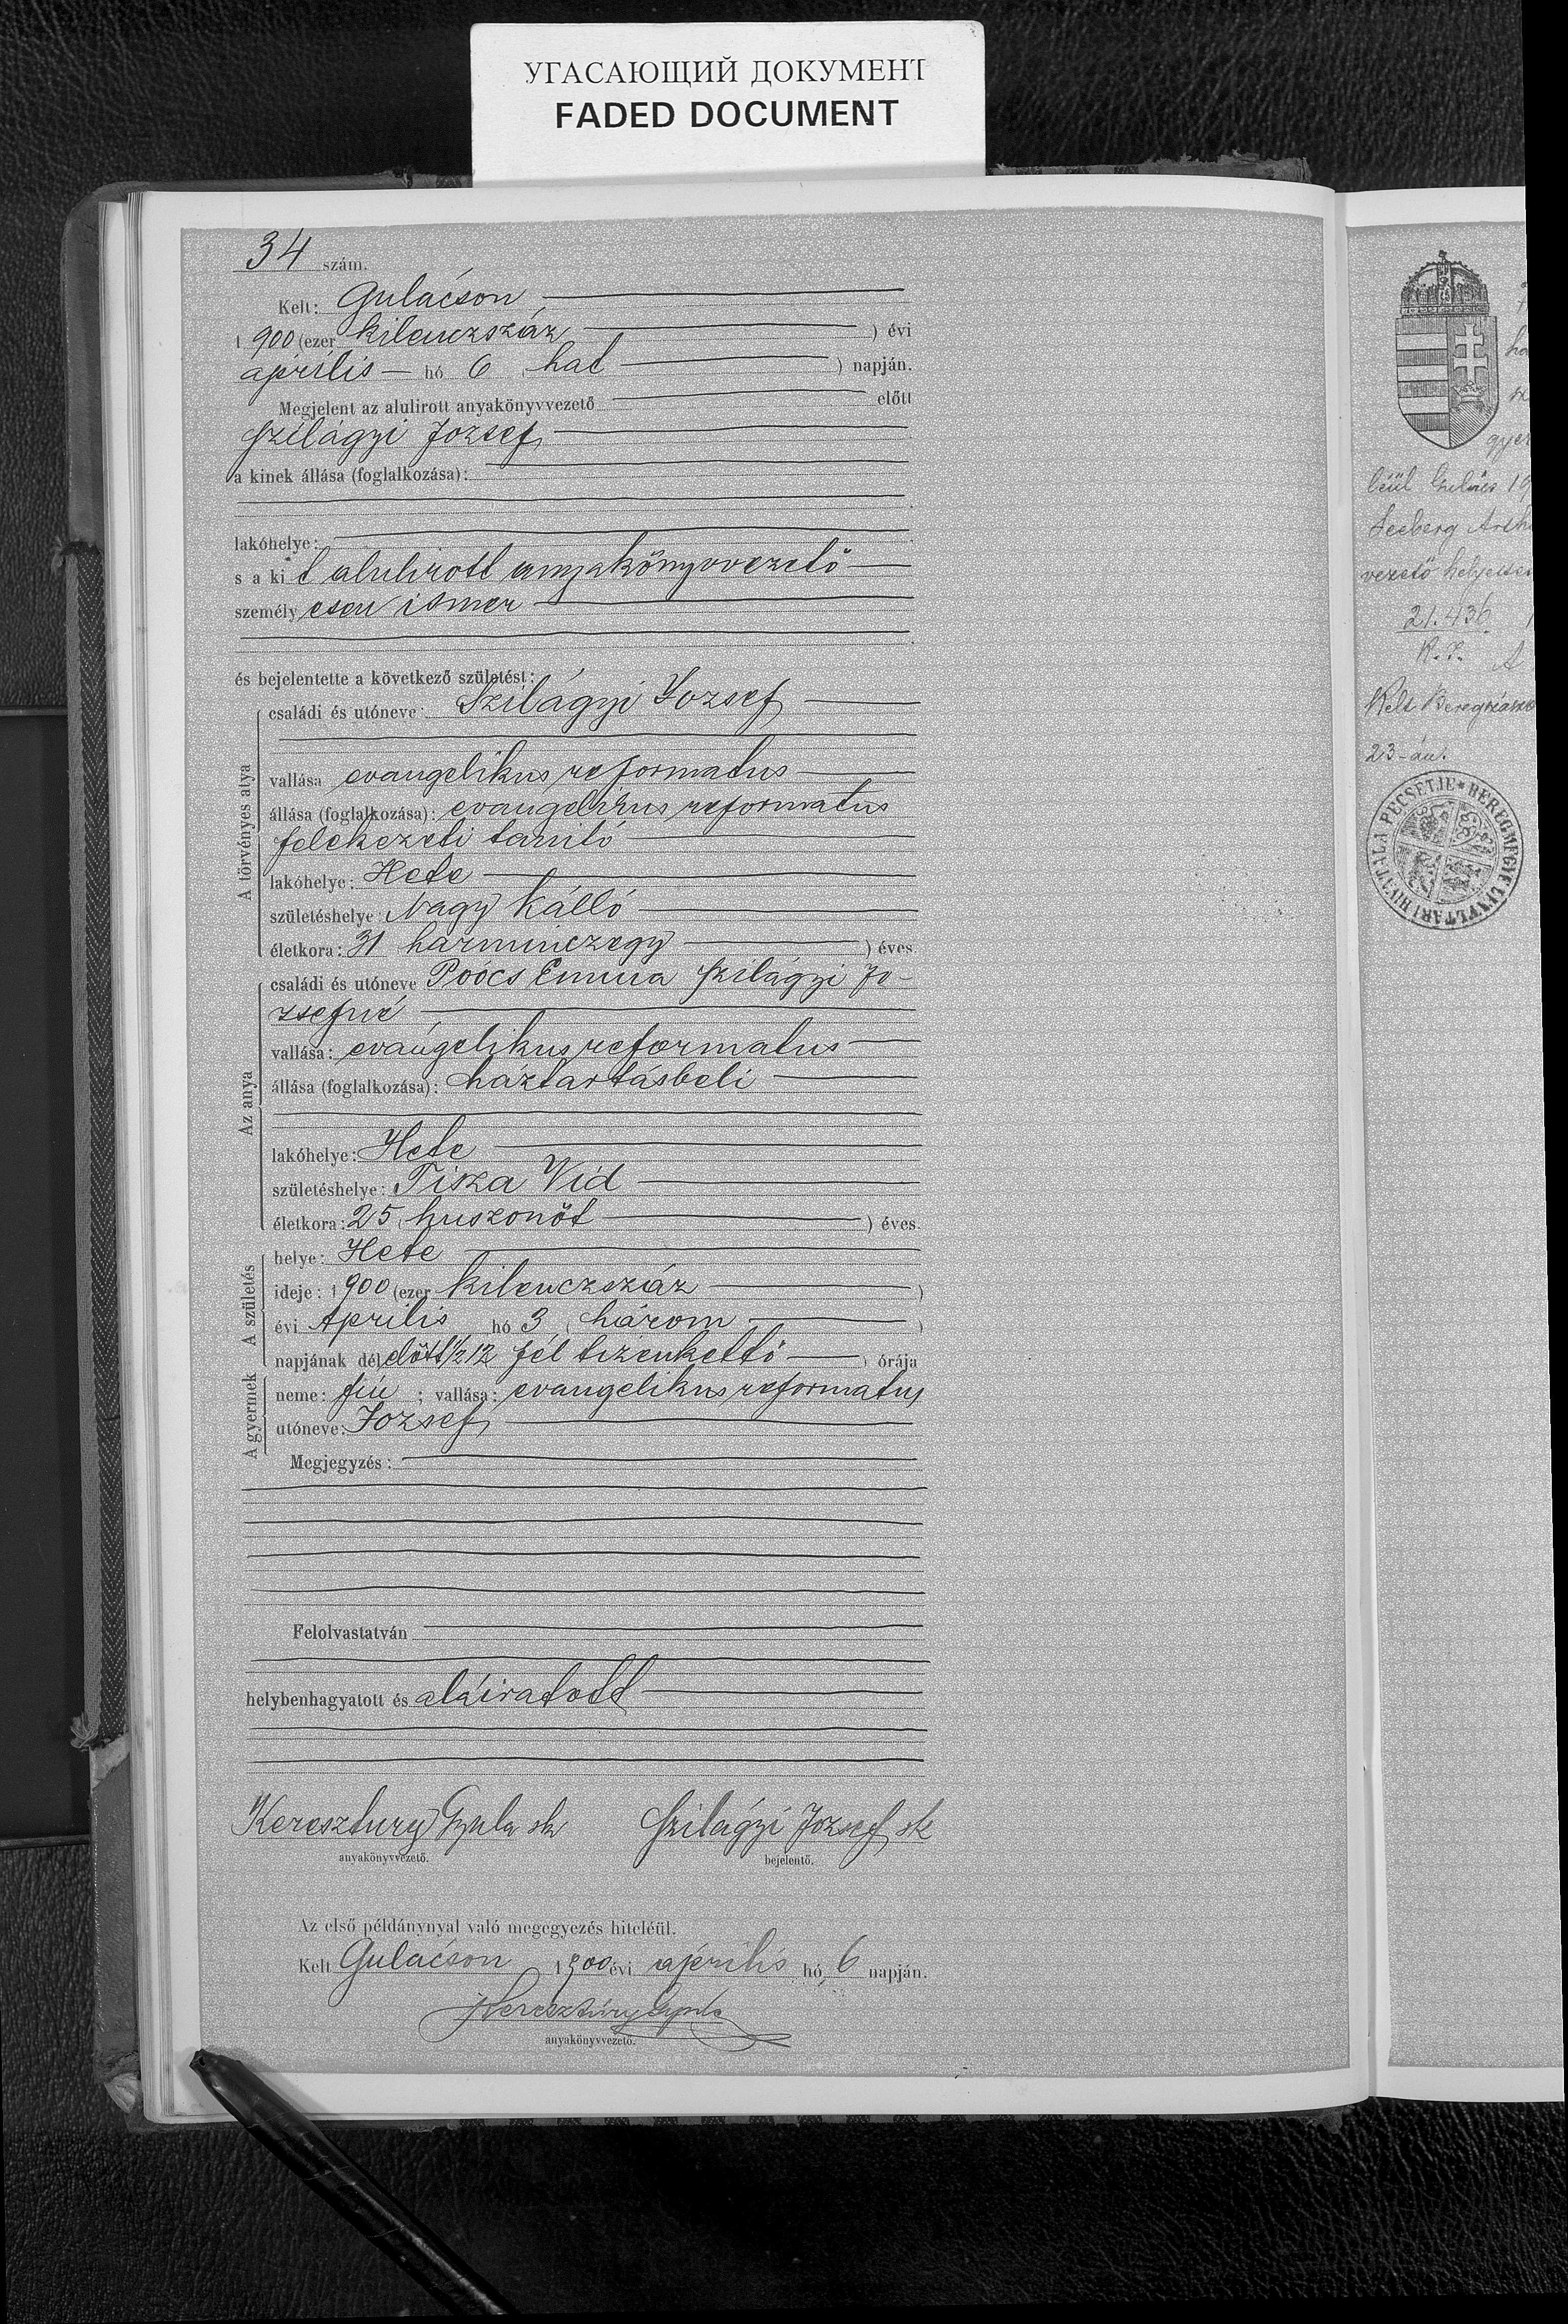 УГАСАЮЩИЙ ДОКУМЕНТ
FADED DOCUMENT
34 szám.
Kelt: Gulácson
1900 (ezer kilenczszáz) évi
április hó 6 (hat) napján.
Megjelent az alulirott anyakönyvvezető előtt
Szilágyi József
a kinek állása (foglalkozása):
lakóhelye:
s a kit alulirott anyakönyvvezető
személyesen ismer
és bejelentette a következő születést:
A törvényes atya
családi és utóneve: Szilágyi József
vallása evangelikus reformatus
állása (foglalkozása): evangelikus reformatus
felekezeti tanitó
lakóhelye: Hete
születéshelye Nagy Kálló
életkora: 31 harminczegy) éves.
Az anya
családi és utóneve Poócs Emma Szilágyi Jó-
zsefné
vallása: evangelikus reformatus
állása (foglalkozása): háztartásbeli
lakóhelye: Hete
születéshelye: Tisza Vid
életkora: 25 (huszonöt) éves.
A születés
helye: Hete
ideje: 1900 (ezer kilenczszáz)
évi Április hó 3 (három)
napjának délelőtt 1/2 12 fél tizenkettő) órája
A gyermek
neme: fiú; vallása: evangelikus reformatus
utóneve: József
Megjegyzés:
Felolvastatván
helybenhagyatott és aláiratott
Keresztury Gyula sk Szilágyi József sk
anyakönyvvezető. bejelentő.
Az első példánynyal való megegyezés hiteléül.
Kelt Gulácson 1900 évi április hó 6 napján.
Keresztury Gyula
anyakönyvvezető.
gyer
léül Gulács 19
Seeberg Arth
vezető helyettes
21.436
Kelt Beregszász
23-án.
BEREGMEGYE LEVÉLTÁRI HIVATALA PECSÉTJE